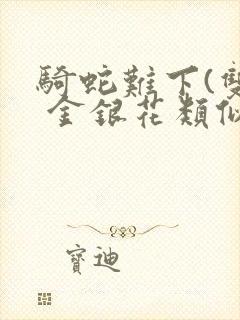 騎蛇難下(雙
金銀花類似
寶迪